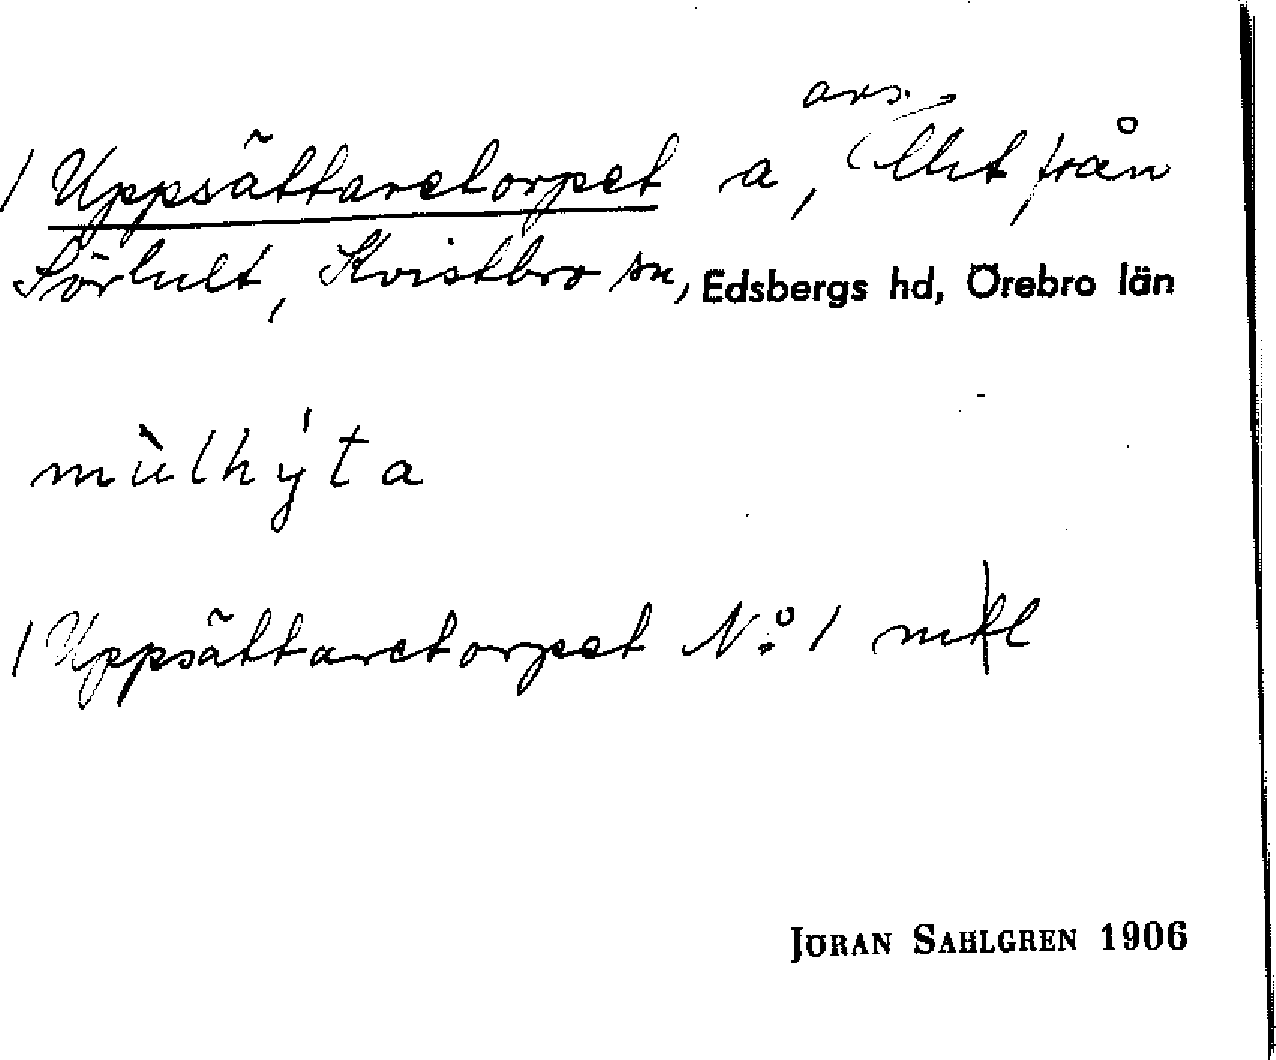 avs.
/ Uppsättaretorpet a, från
Sörhult, Kvistbro sn, Edsbergs hd, Örebro län
mùlhýta
/ Uppsättaretorpet No 1 mtl
JÖRAN SAHLGREN 1906